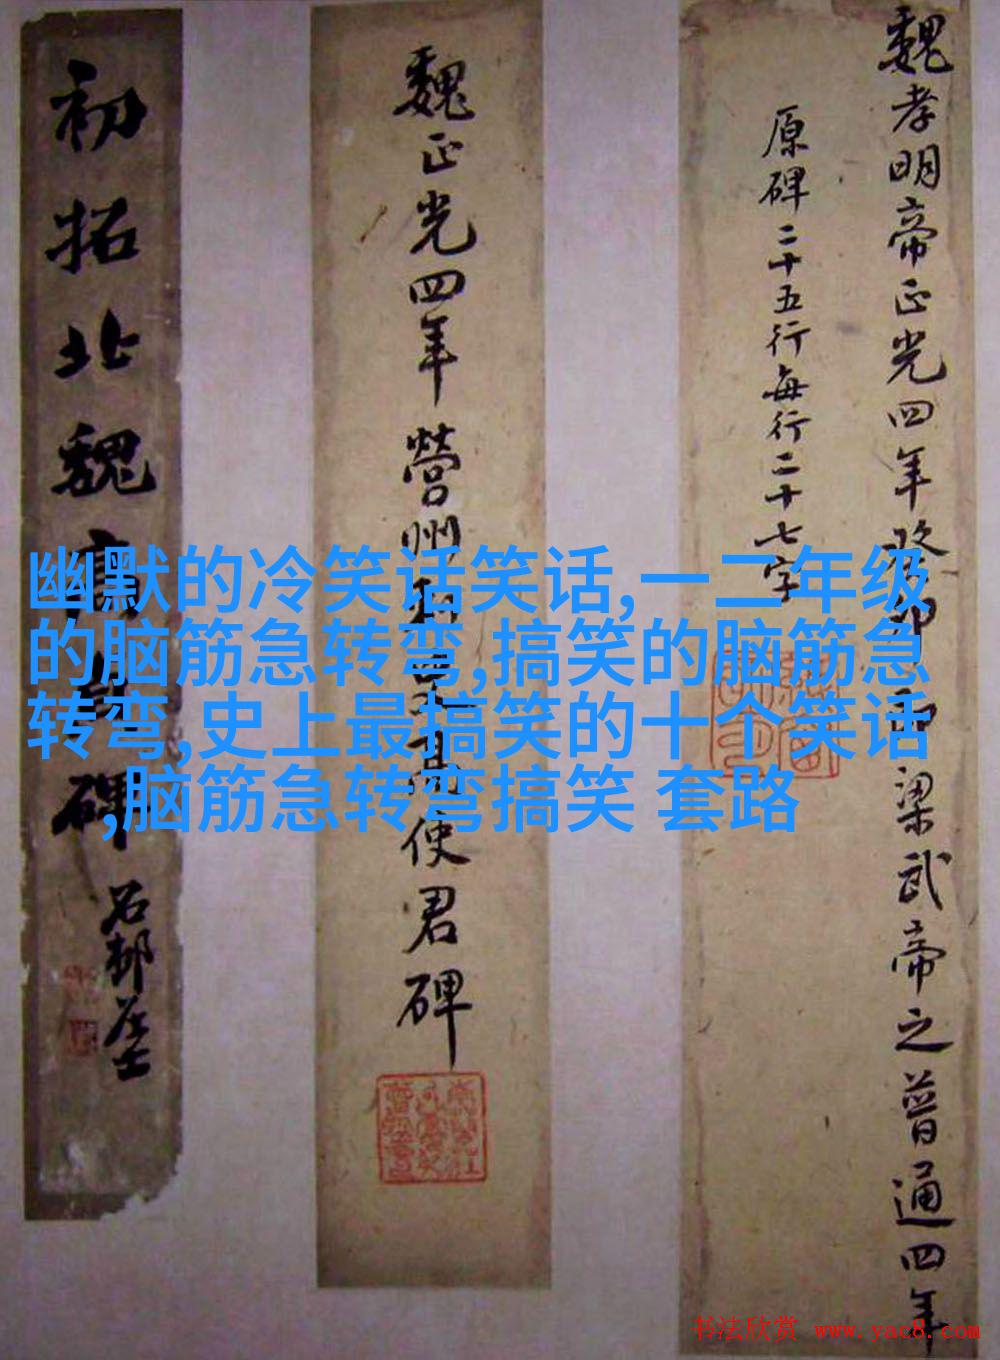 魏孝明帝正光四年改 即 梁武帝之普通四年
原碑二十五行每行二十七字
魏正光四年營州刺史高使君碑
初拓北魏高 碑
石邨居士
幽默的冷笑话笑话,一二年级
的脑筋急转弯,搞笑的脑筋急
转弯,史上最搞笑的十个笑话
,脑筋急转弯搞笑 套路
书法欣赏 www.yac8.com